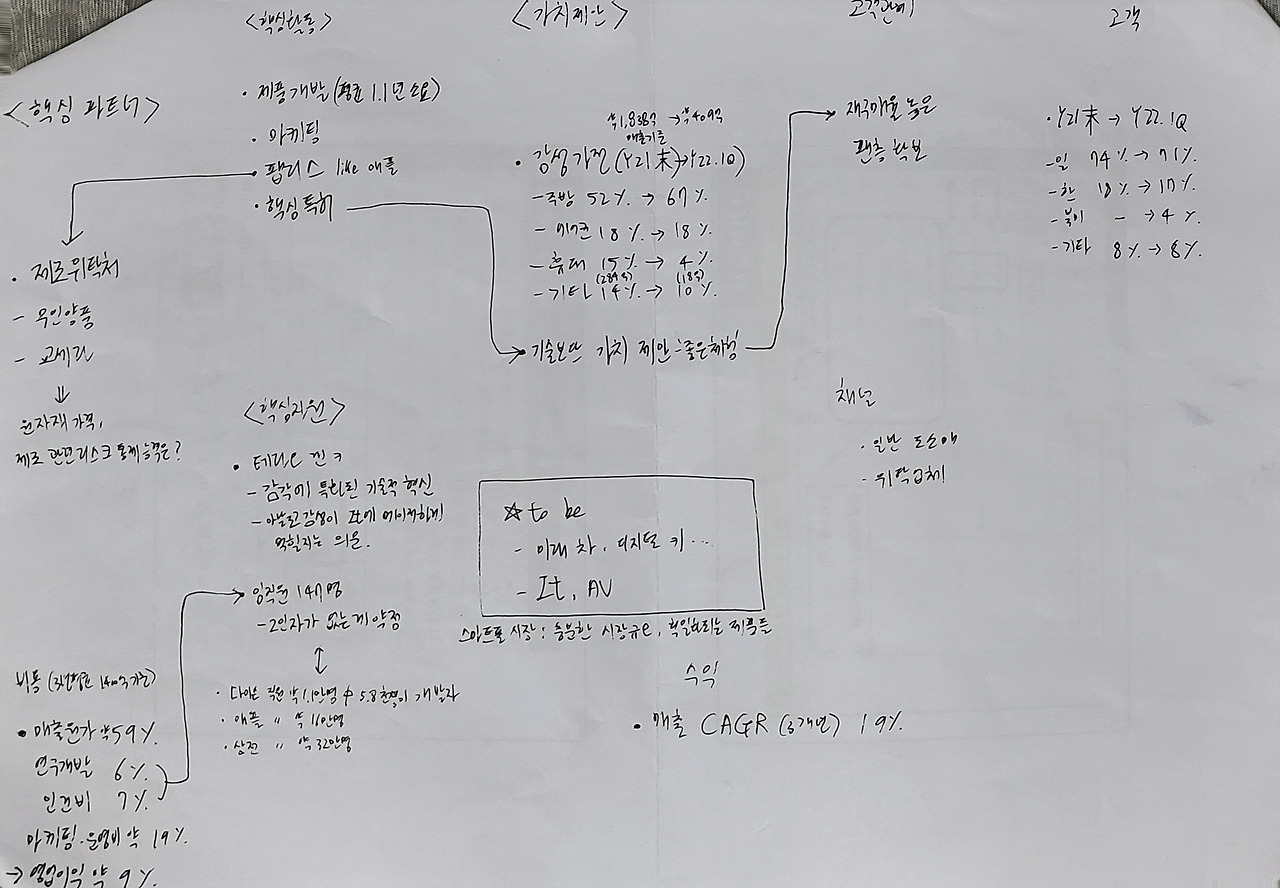 <핵심활동>
· 제품개발 (평균 1.1년 소요)
· 마케팅
· 팹리스 like 애플
· 핵심특허
<핵심 파트너>
· 제조위탁처
- 우인양품
- 교세라
⇓
원자재 가격,
제조 관련 리스크 통제능력은?
<가치제안>
약1,838억 → 약409억
매출기준
· 감성가전 (Y21末→Y22.1Q)
- 주방 52% → 67%
- 에어컨 18% → 18%
- 휴대 15% → 4%
(289억) (18억)
- 기타 14% → 10%
→ 기술보단 가치 제안 : 좋은체험
고객관계
재구매율 높은
팬층 확보
고객
· Y21末 → Y22.1Q
- 일 74% → 71%
- 한 18% → 17%
- 북미 - → 4%
- 기타 8% → 8%
<핵심자원>
· 테라오 겐
- 감각에 특화된 기술적 혁신
- 아날로그감성이 It에
먹힐지는 의문.
임직원 147명
- 2인자가 없는게 약점
↕
· 다이슨 직원 약1.1만명 中 5.8천명이 개발자
· 애플 〃 약 16만명
· 삼전 〃 약 32만명
채널
· 일반 도소매
· 위탁업체
☆ to be
- 미래 차, 디지털 키...
- It, AV
스마트폰 시장 : 충분한 시장규모, 획일화되는 제품들
비용 (3년평균 140억 기준)
· 매출원가 약 59%
연구개발 6%
인건비 7%
마케팅·운영비 약 19%
→ 영업이익 약 9%
수익
· 매출 CAGR (3개년) 19%